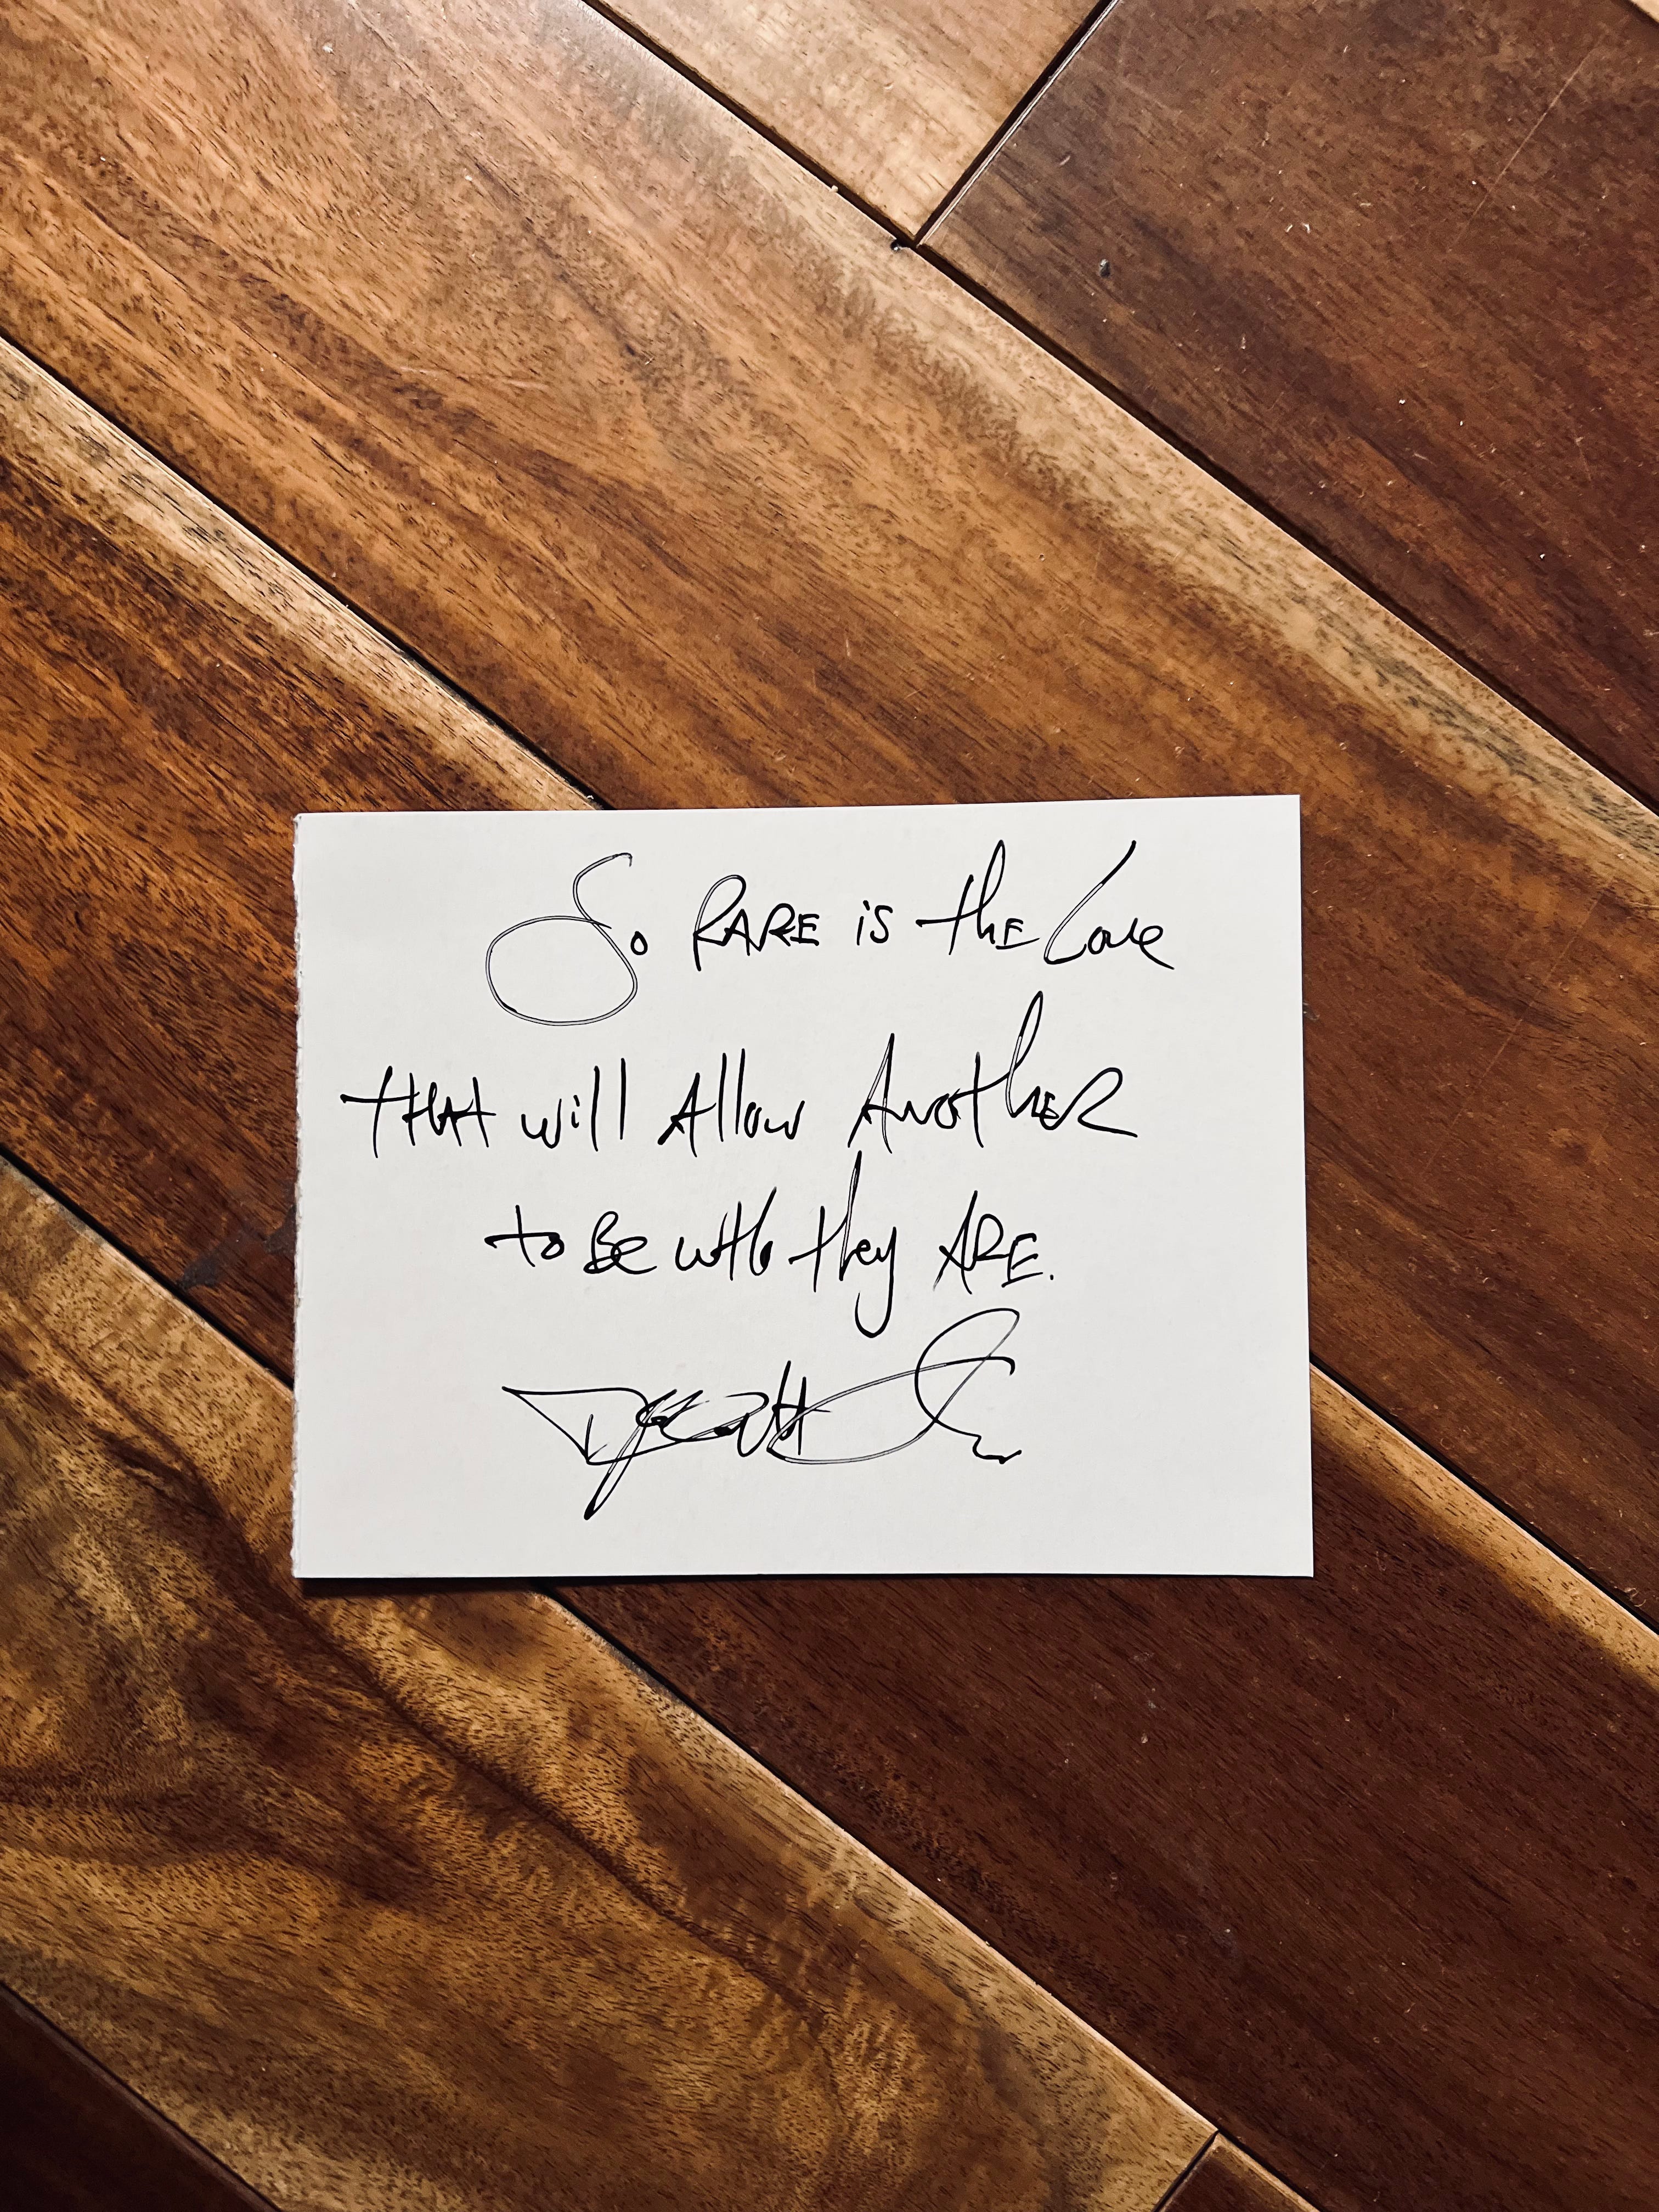 So RARE is the Love
THAT will Allow ANotHER
to Be wHo they ARE.